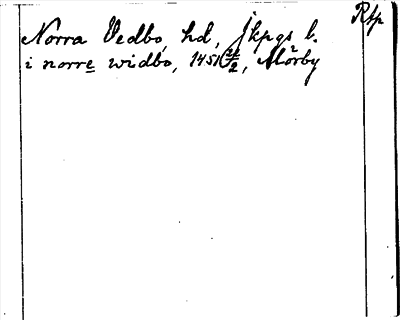 Rsp
Norra Vedbo, hd, Jkpgs l.
i norre widbo, 1451 21/2, Mörby